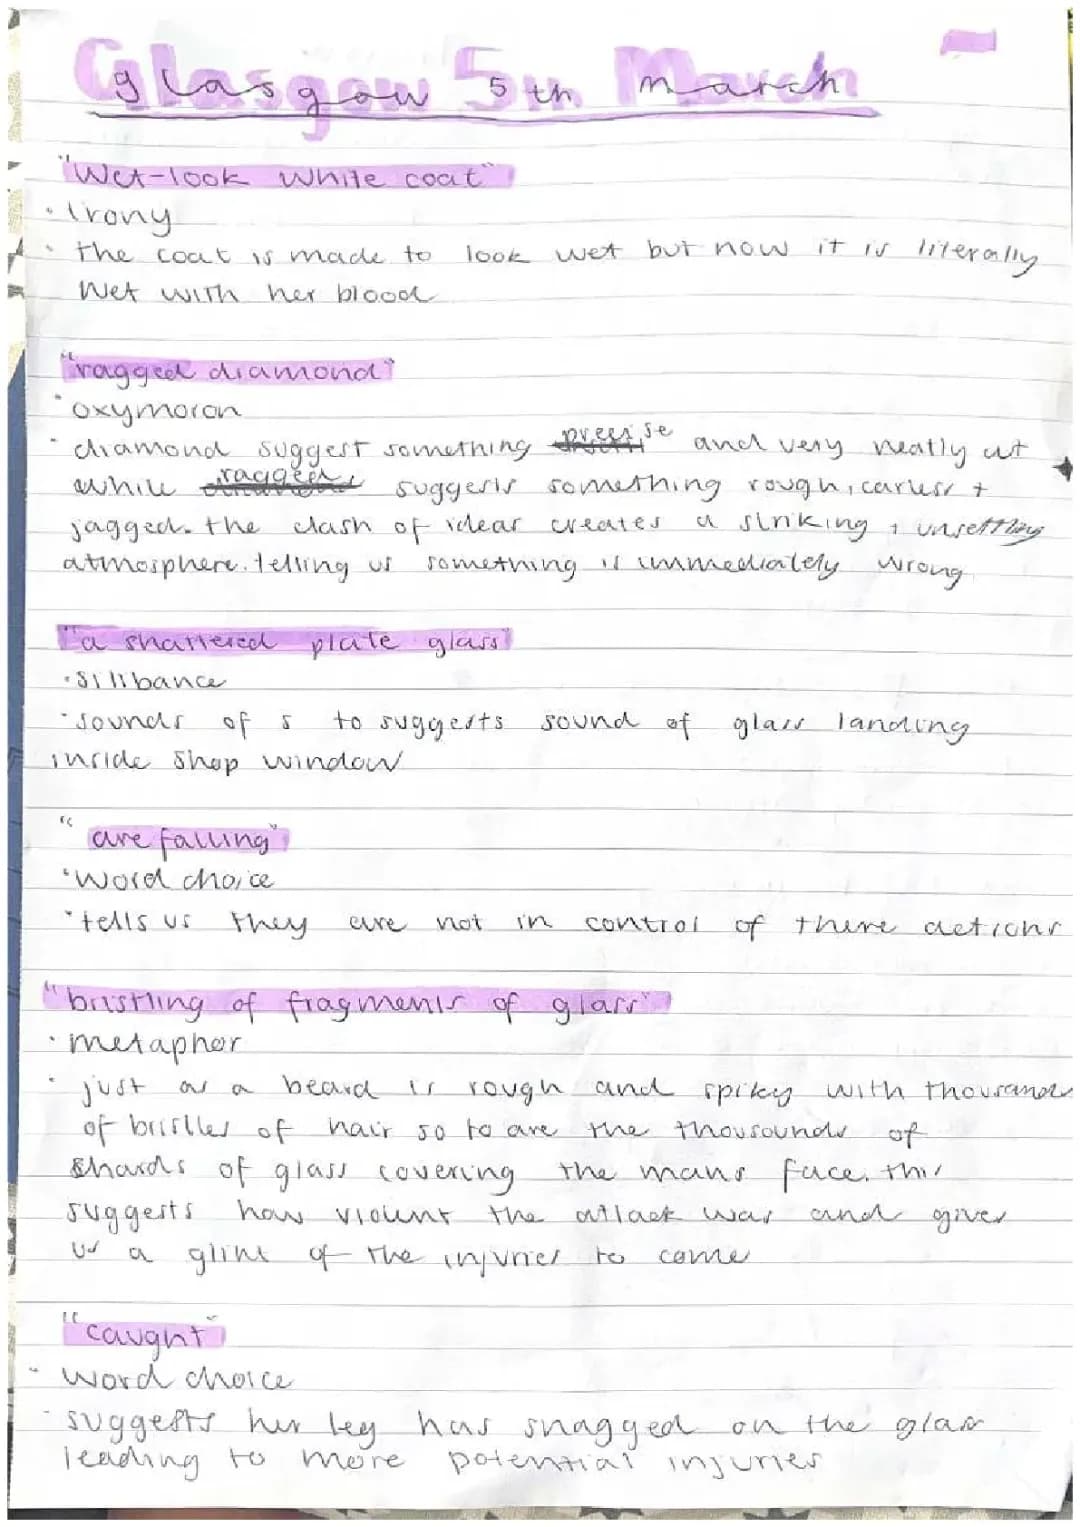 Glasgow 5th March
"Wet-look white coat"
· Irony
· the coat is made to look wet but now it is literally
wet with her blood
"ragged diamond"
· oxymoron
· diamond suggest something precise and very neatly cut
while ragged suggests something rough, carless +
jagged. the clash of ideas creates a striking + unsettling
atmosphere. telling us something is immediately wrong
"a shattered plate glass"
· silibance
· sounds of s to suggests sound of glass landing
inside shop window
"are falling"
· word choice
· tells us they are not in control of there actions
"bristling of fragments of glass"
· metaphor
· just as a beard is rough and spiky with thousands
of bristles of hair so to are the thousounds of
shards of glass covering the mans face. this
suggests how violent the attack was and gives
us a glint of the injuries to come
"caught"
· word choice
· suggests her leg has snagged on the glass
leading to more potential injuries